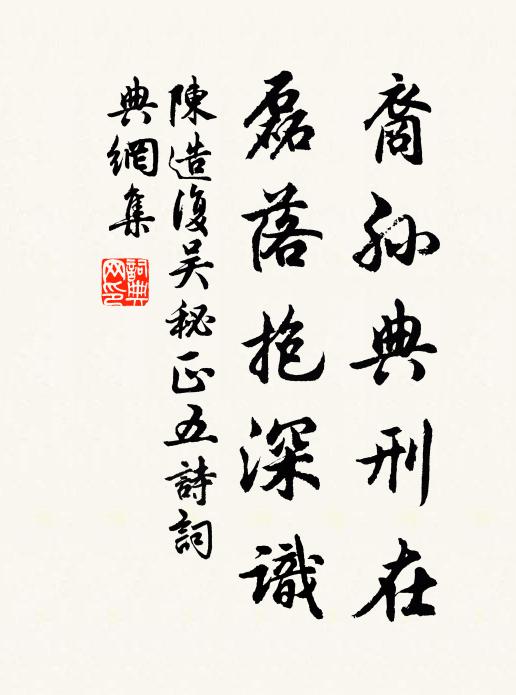 裔孙典刑在
磊落抱深識
陳造復吴秘正五詩詞
典網集
詞典网印